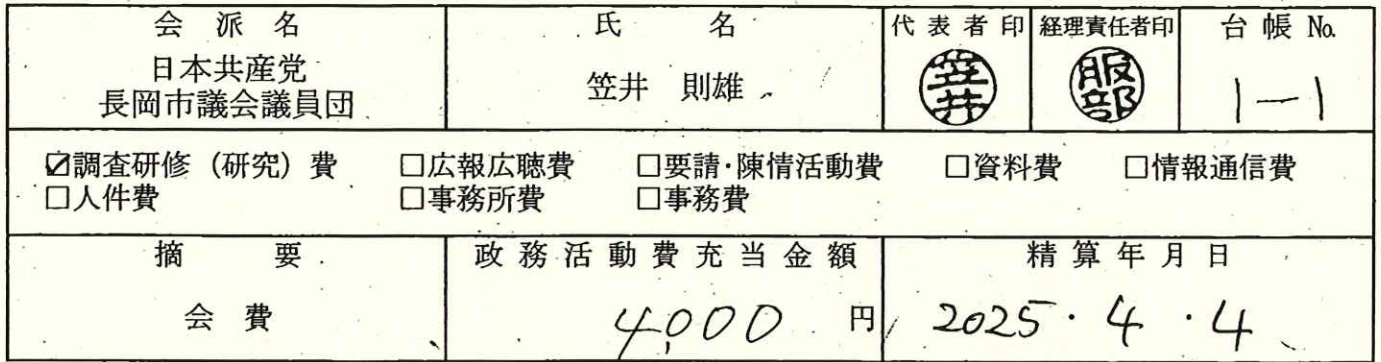 会派名 氏名 代表者印 経理責任者印 台帳No.
日本共産党
長岡市議会議員団
笠井 則雄
笠井
服部
1-1
☑調査研修（研究）費 □広報広聴費 □要請・陳情活動費 □資料費 □情報通信費
□人件費 □事務所費 □事務費
摘要 政務活動費充当金額 精算年月日
会費 4,000 円 2025・4・4